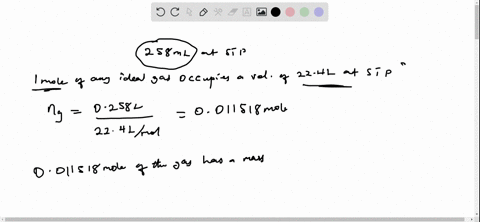 258mL at STP
1 mole of any ideal gas occupies a vol. of 22.4L at STP"
ng = 0.258L / 22.4L/mol = 0.011518 mole
0.011518 mole of the gas has a mass